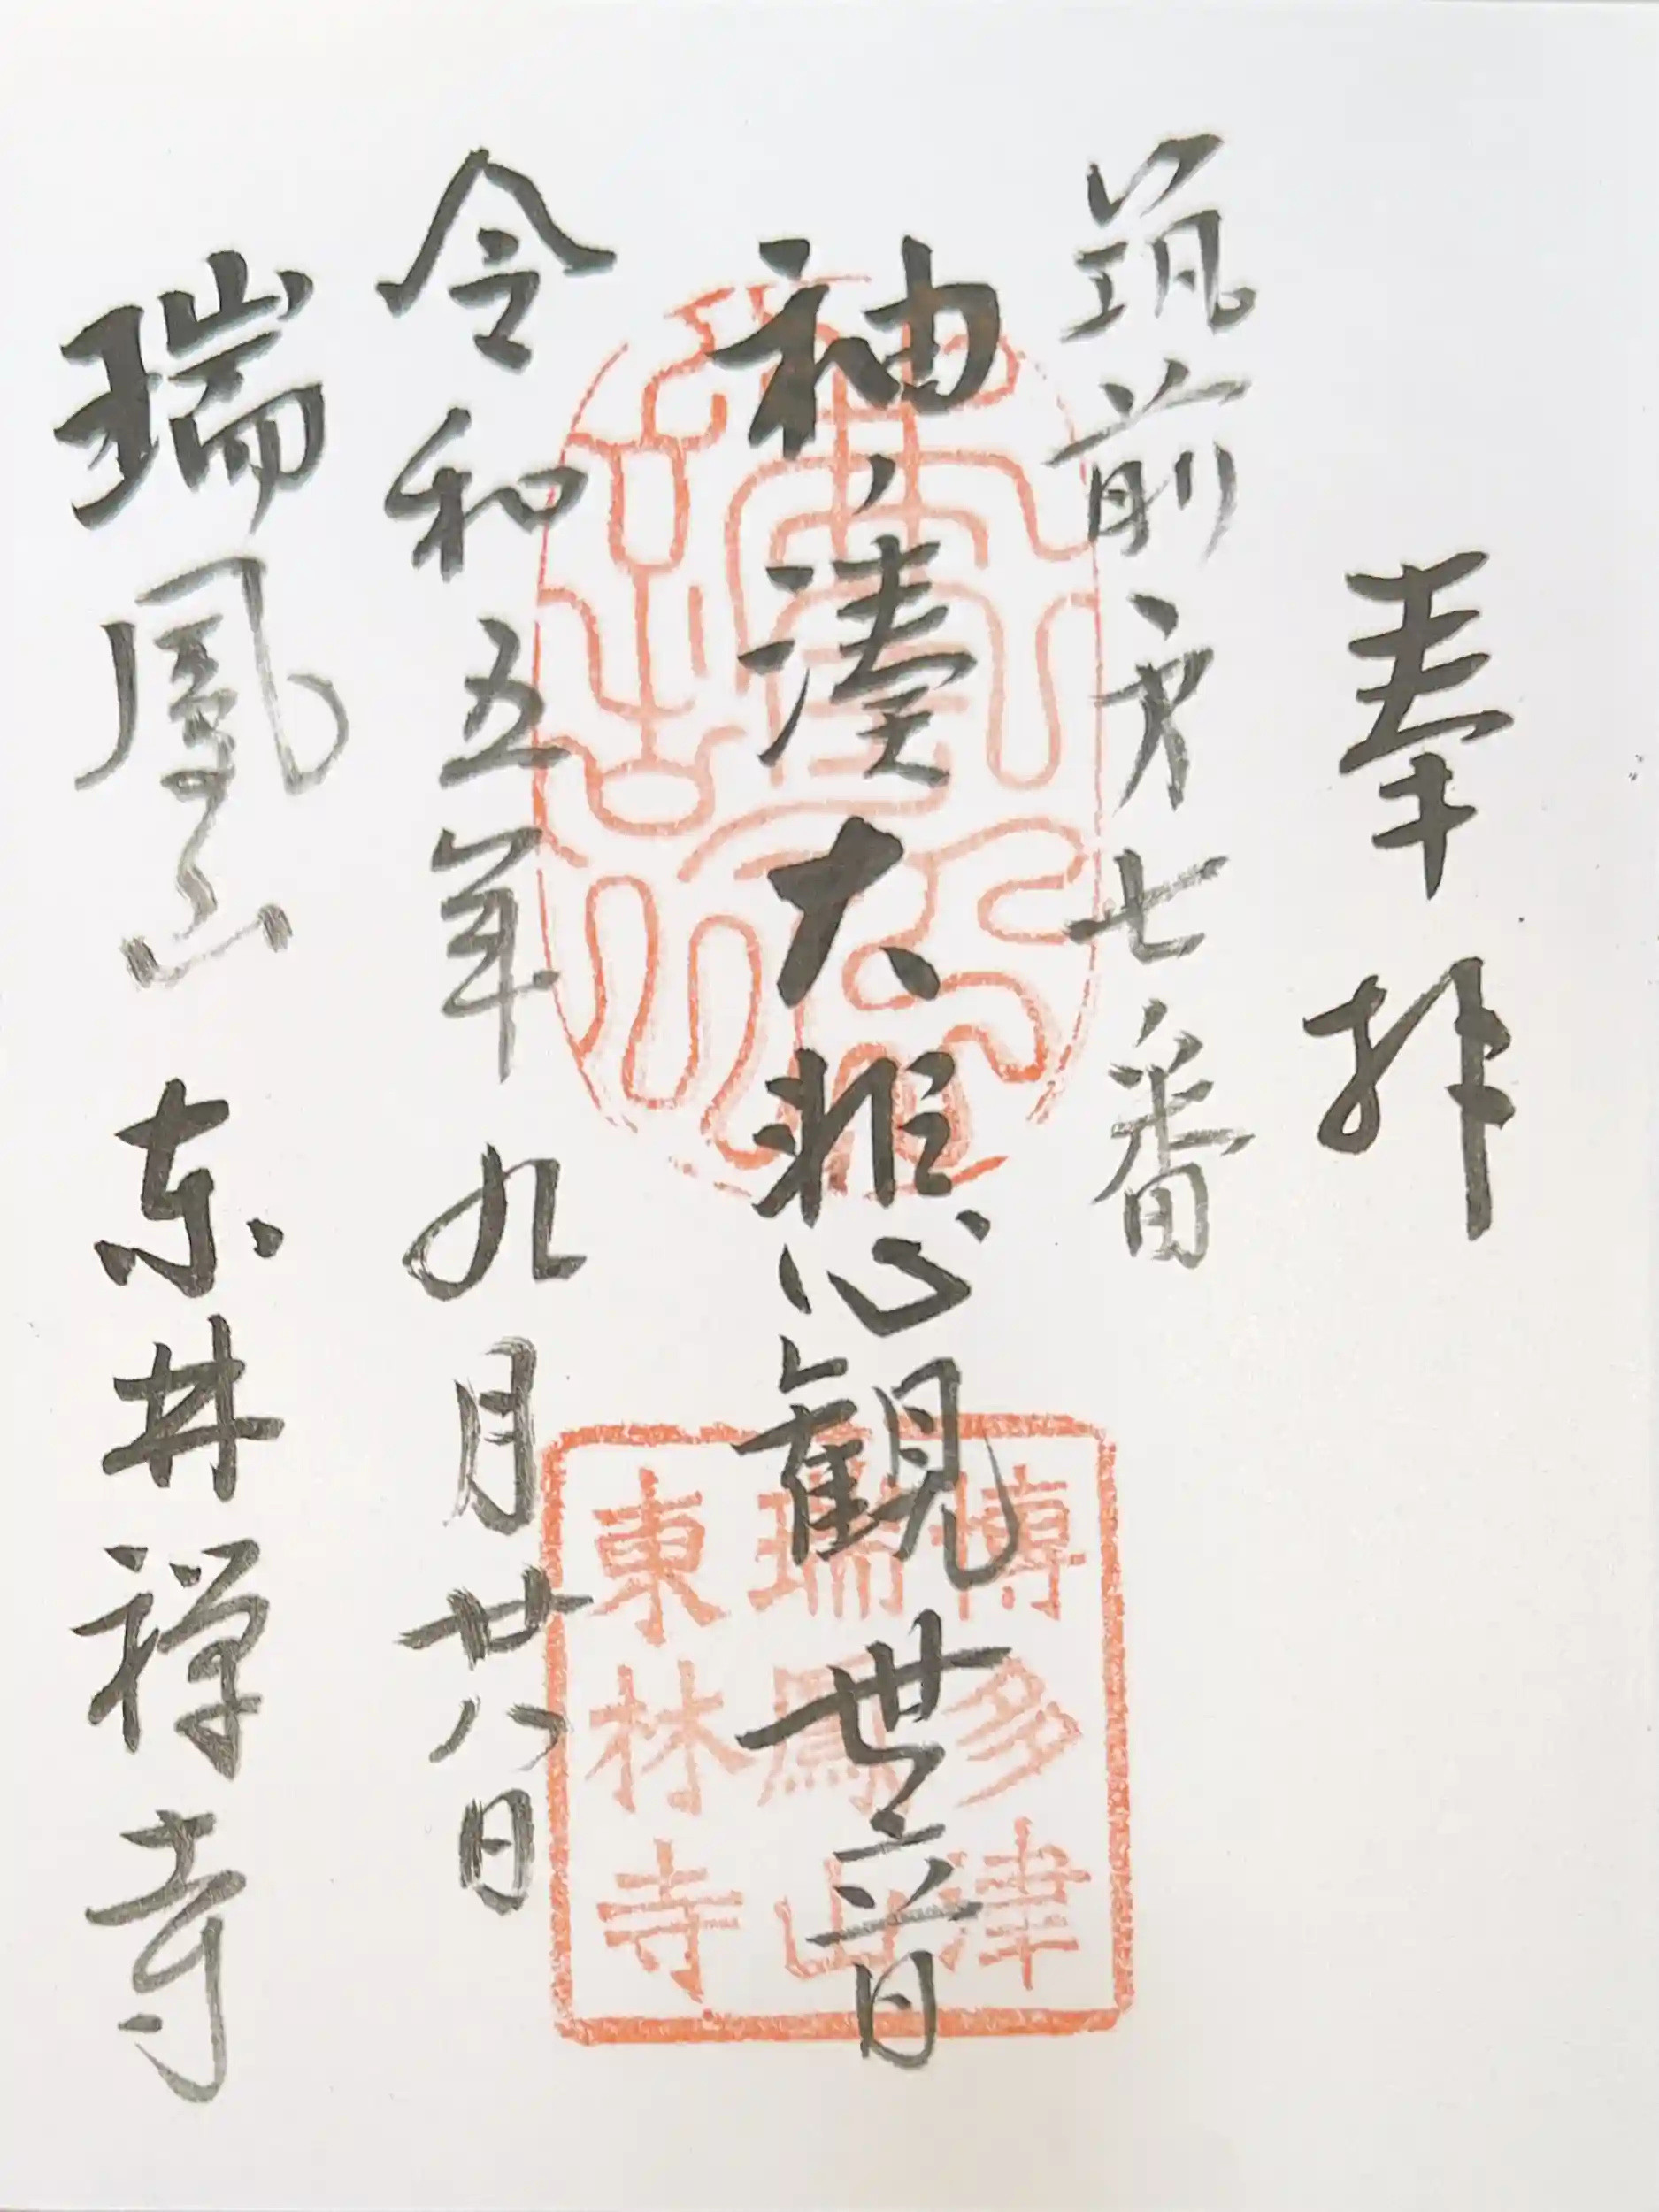 奉拝
筑前第七番
袖ノ湊大悲観世音
令和五年九月廿八日
瑞鳳山東林禅寺
博多津
瑞鳳山
東林寺